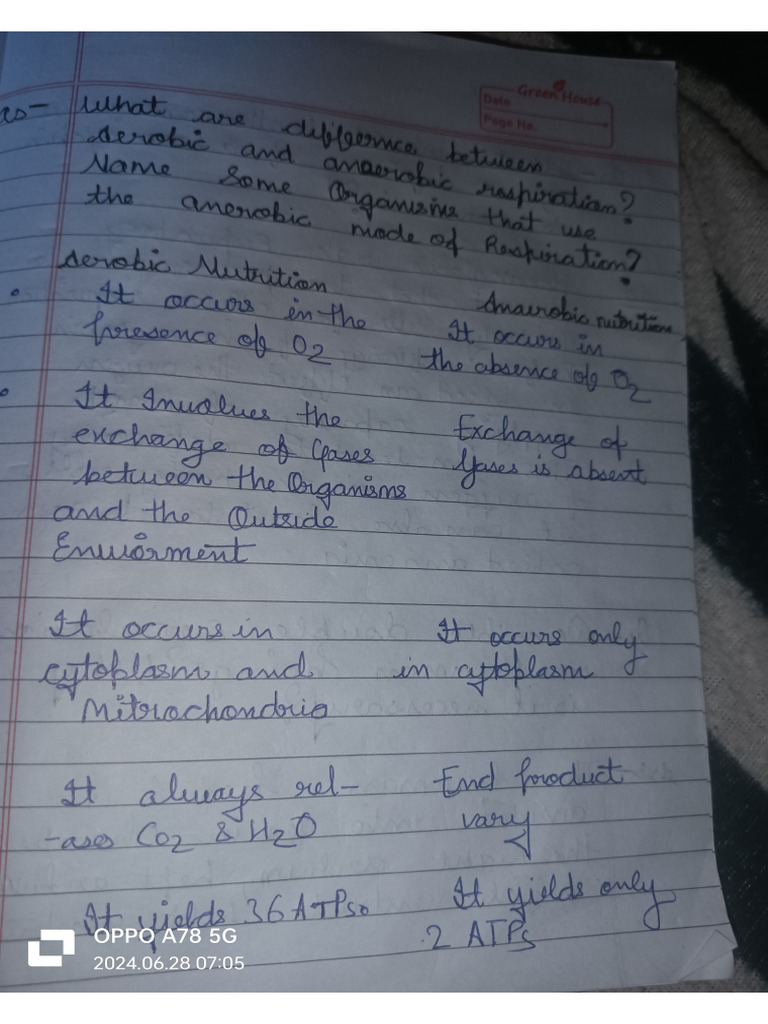 Green House
Date
Page No.
What are differnce between
Aerobic and anaerobic respiration?
Name Some Organisms that use
the anerobic mode of Respiration?
Aerobic Nutrition
Anaerobic nutrition
It occurs in the
presence of O2
It occurs in
the absence of O2
It Involves the
exchange of Gases
between the Organisms
and the Outside
Enviorment
Exchange of
Gases is absent
It occurs in
cytoplasm and
Mitrochondria
It occurs only
in cytoplasm
It always rel-
-ases CO2 & H2O
End product
vary
It yields 36 ATPs.
It yields only
2 ATPs
OPPO A78 5G
2024.06.28 07:05